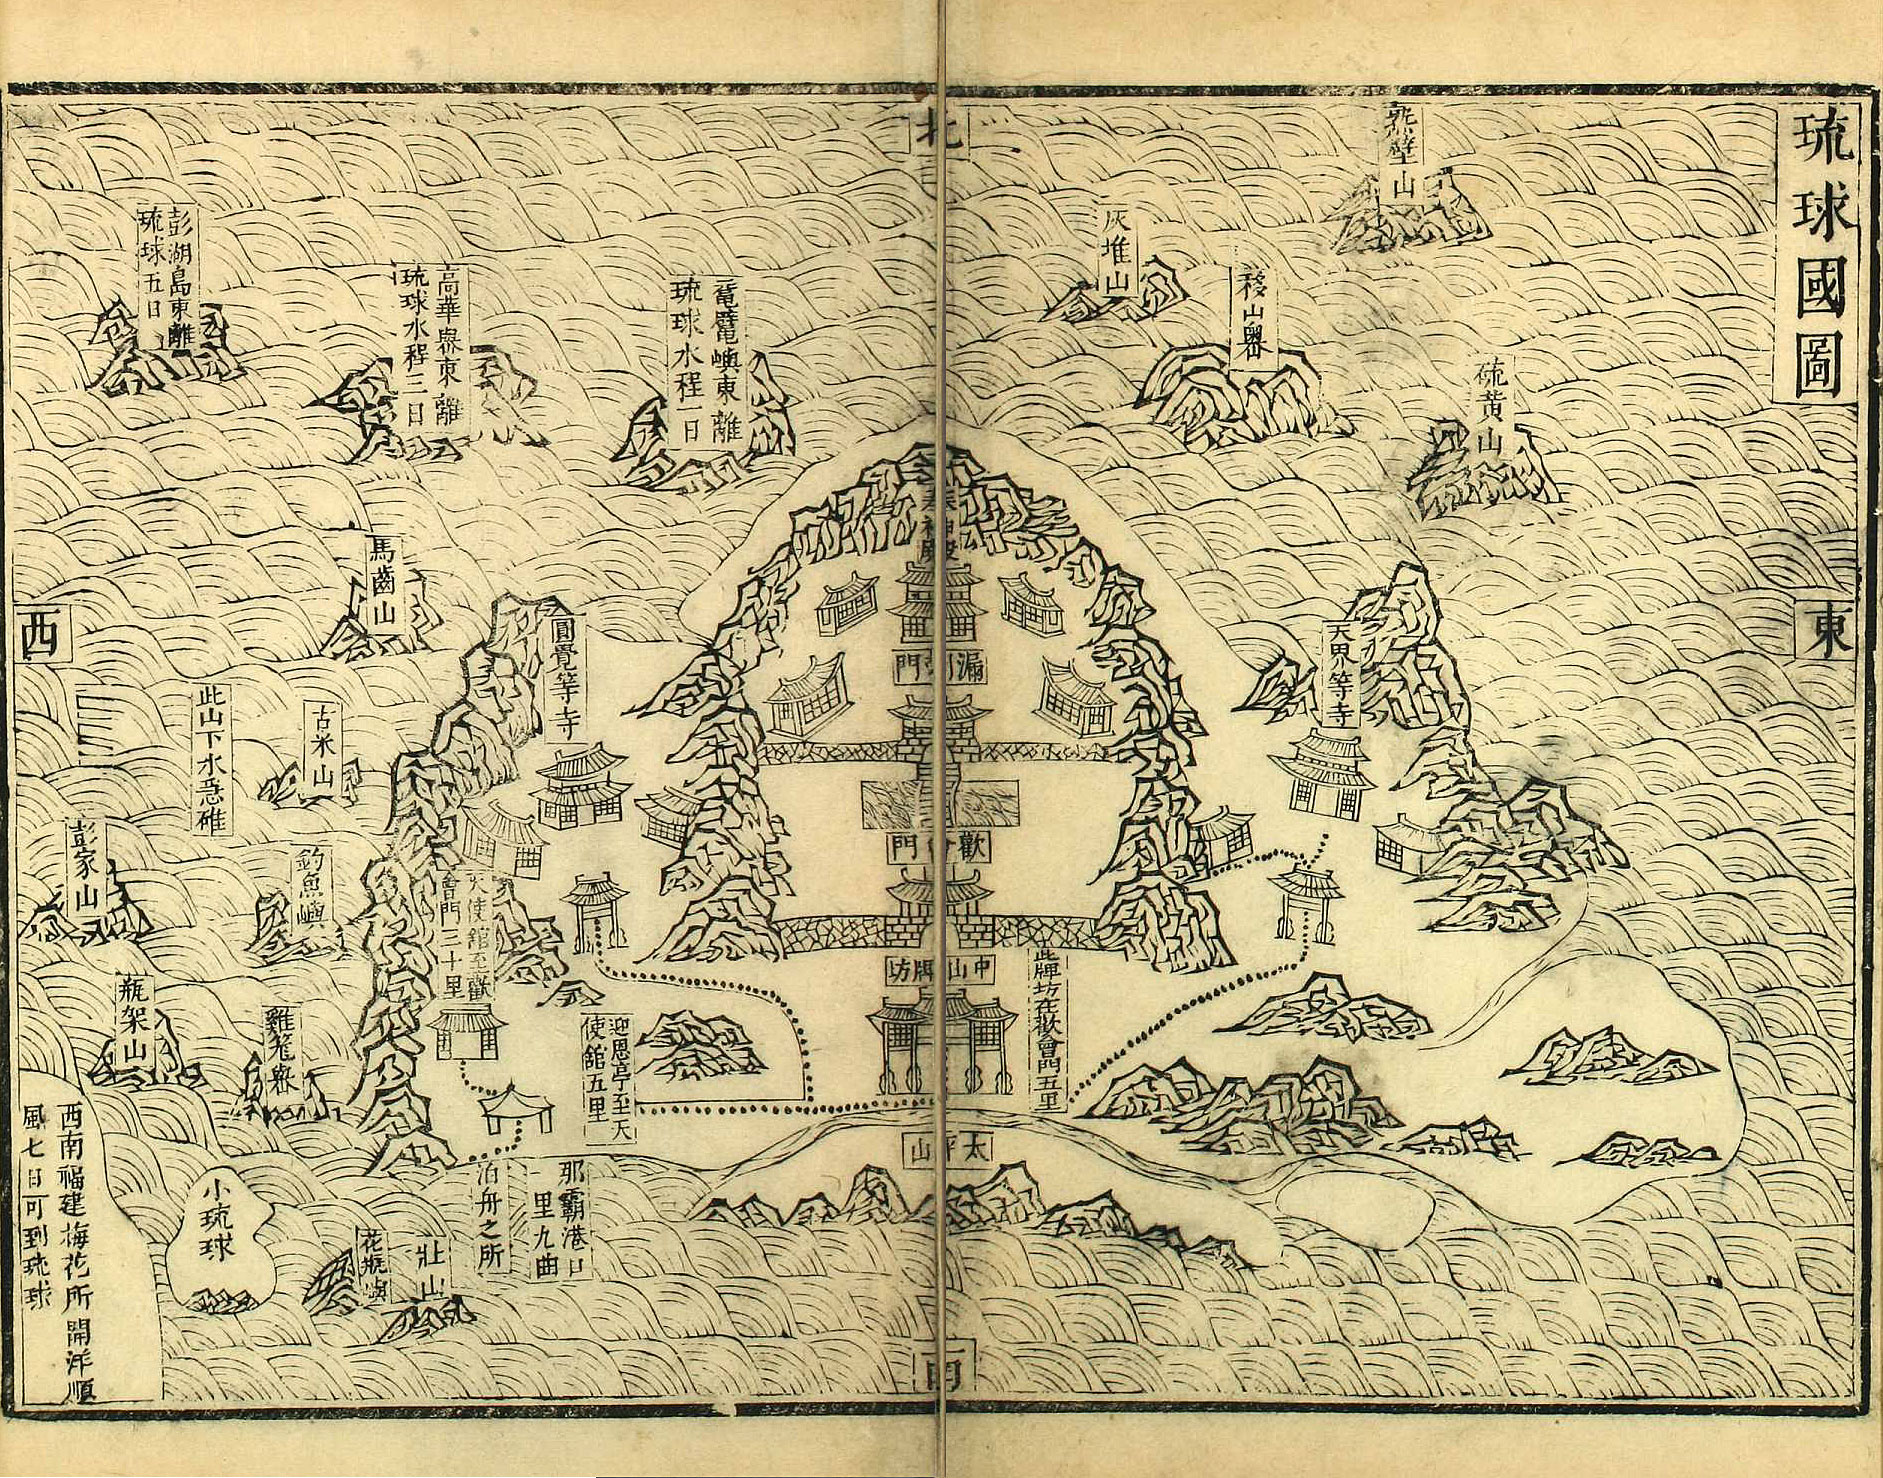 琉球國圖
北
東
西
南
熱壁山
灰堆山
移山嶴
硫黃山
黿鼊嶼東離
琉球水程一日
高華嶼東離
琉球水程三日
彭湖島東離
琉球五日
天界等寺
奉神殿
漏刻門
歡會門
中山牌坊
此牌坊在歡會門五里
太平山
圓覺等寺
馬齒山
古米山
此山下水急礁
釣魚嶼
彭家山
瓶架山
雞籠嶴
天使舘至歡
會門三十里
迎恩亭至天
使舘五里
那霸港口
一里九曲
泊舟之所
壯山
花瓶嶼
小琉球
西南福建梅花所開洋順
風七日可到琉球